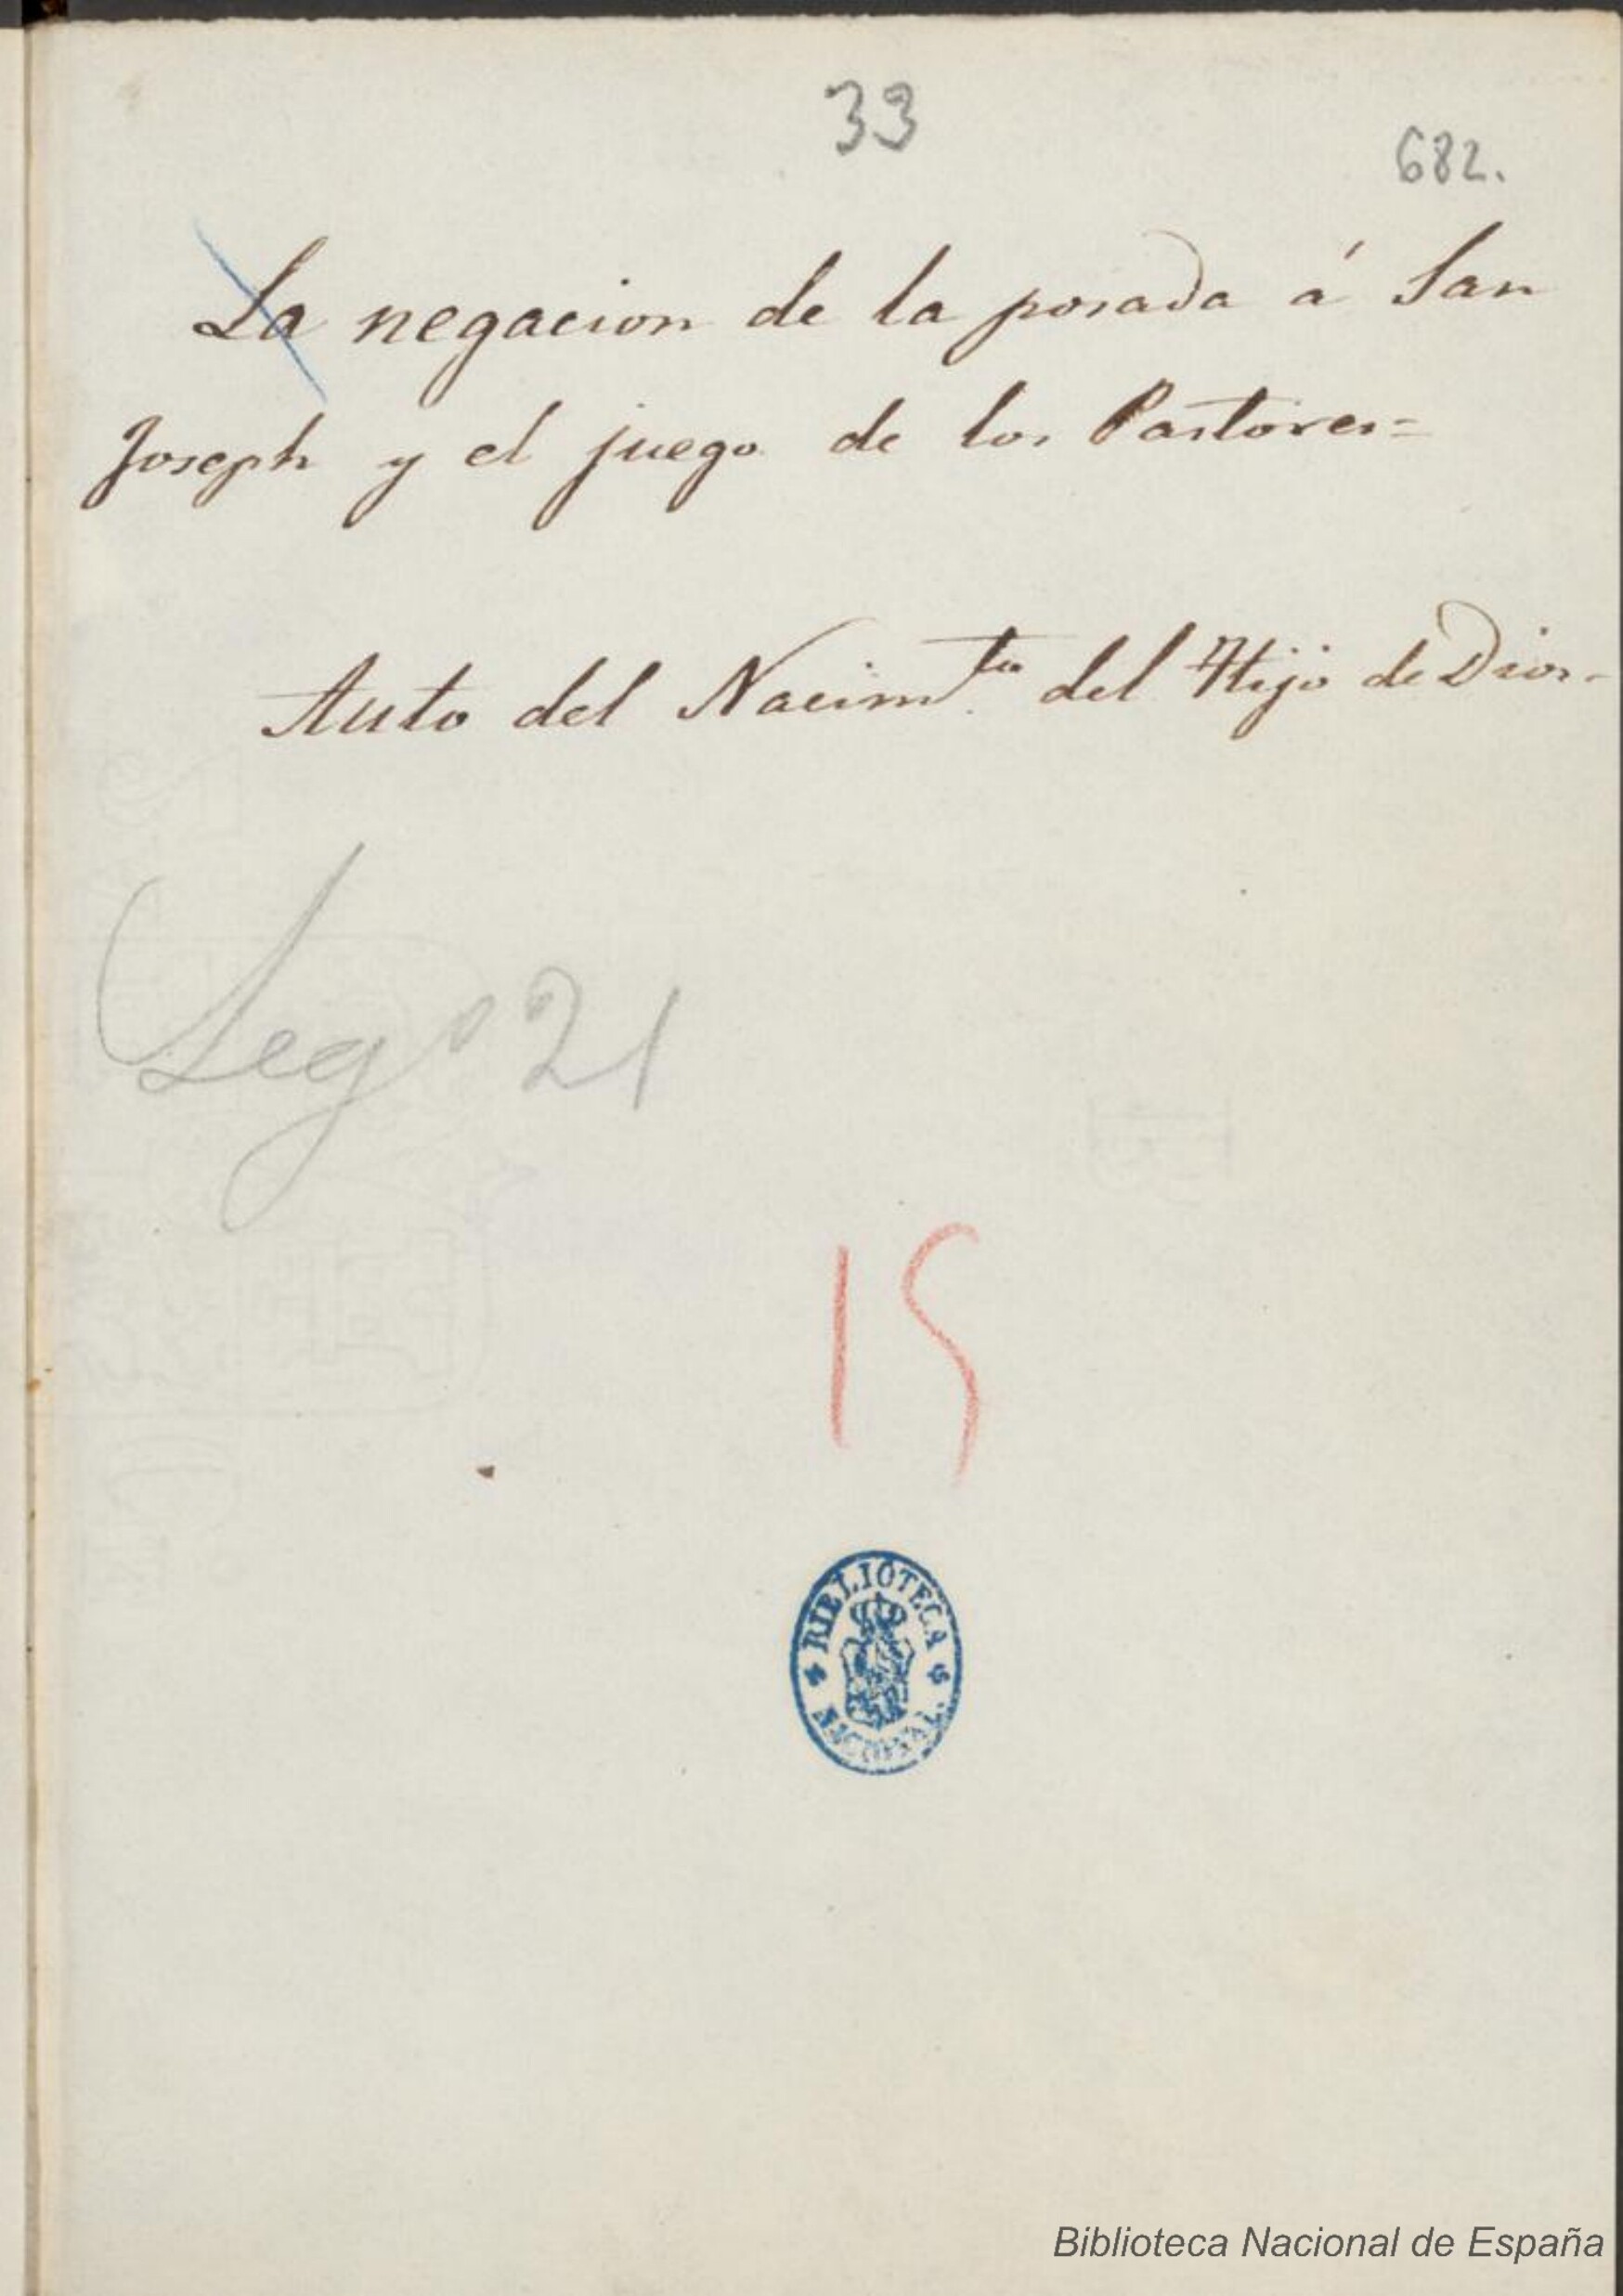 33
682.
La negacion de la posada á San
Joseph y el juego de los Pastores=
Auto del Nacim.to del Hijo de Dios-
Leg.o 21
15
BIBLIOTECA
NACIONAL.
Biblioteca Nacional de España